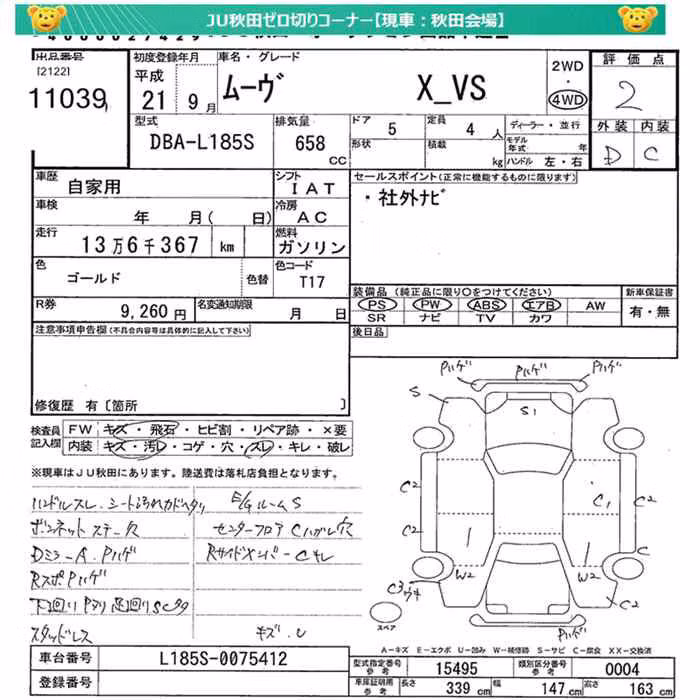 JU秋田ゼロ切りコーナー【現車：秋田会場】
出品番号
[2122]
11039
初度登録年月
平成
21 9月
車名・グレード
ムーヴ X_VS
2WD
・
4WD
評価点
2
外装 内装
D C
型式
DBA-L185S
排気量
658
CC
ドア 5
定員 4 人
形状
積載 kg
ディーラー・並行
モデル年式 年
ハンドル 左・右
車歴
自家用
シフト
IAT
車検
年 月( 日)
冷房
AC
走行
13万6千367 km
燃料
ガソリン
色
ゴールド
色替
色コード
T17
R券
9,260 円
名変通知期限
月 日
セールスポイント(正常に機能するものに限ります)
・社外ナビ
装備品 (純正品に限り○をつけてください)
PS PW ABS エアB AW
SR ナビ TV カワ
新車保証書
有・無
後日品
注意事項申告欄(不具合内容等は具体的に記入して下さい)
修復歴 有〔箇所 〕
検査員記入欄
FW キズ・飛石・ヒビ割・リペア跡・×要
内装 キズ・汚レ・コゲ・穴・スレ・キレ・破レ
※現車はJU秋田にあります。陸送費は落札店負担となります。
ハンドルスレ シート汚れ
E/GルームS
センターフロア Cハガレ穴
Dミラー A Pハゲ
RサイドメンバーCキレ
RスポPハゲ
下回り
スタッドレス
キズ、U
Pハゲ
Pハゲ
Pハゲ
S
S1
C2
C1
C2
C2
C
W2
W2
C2
Pハゲ
スペア
A-キズ E-エクボ U-凹み W-補修跡 S-サビ C-腐食 XX-交換済
車台番号
L185S-0075412
登録番号
型式指定番号
参考
15495
類別区分番号
参考
0004
車庫証明用
参考
長さ 339 cm
幅 147 cm
高さ 163 cm